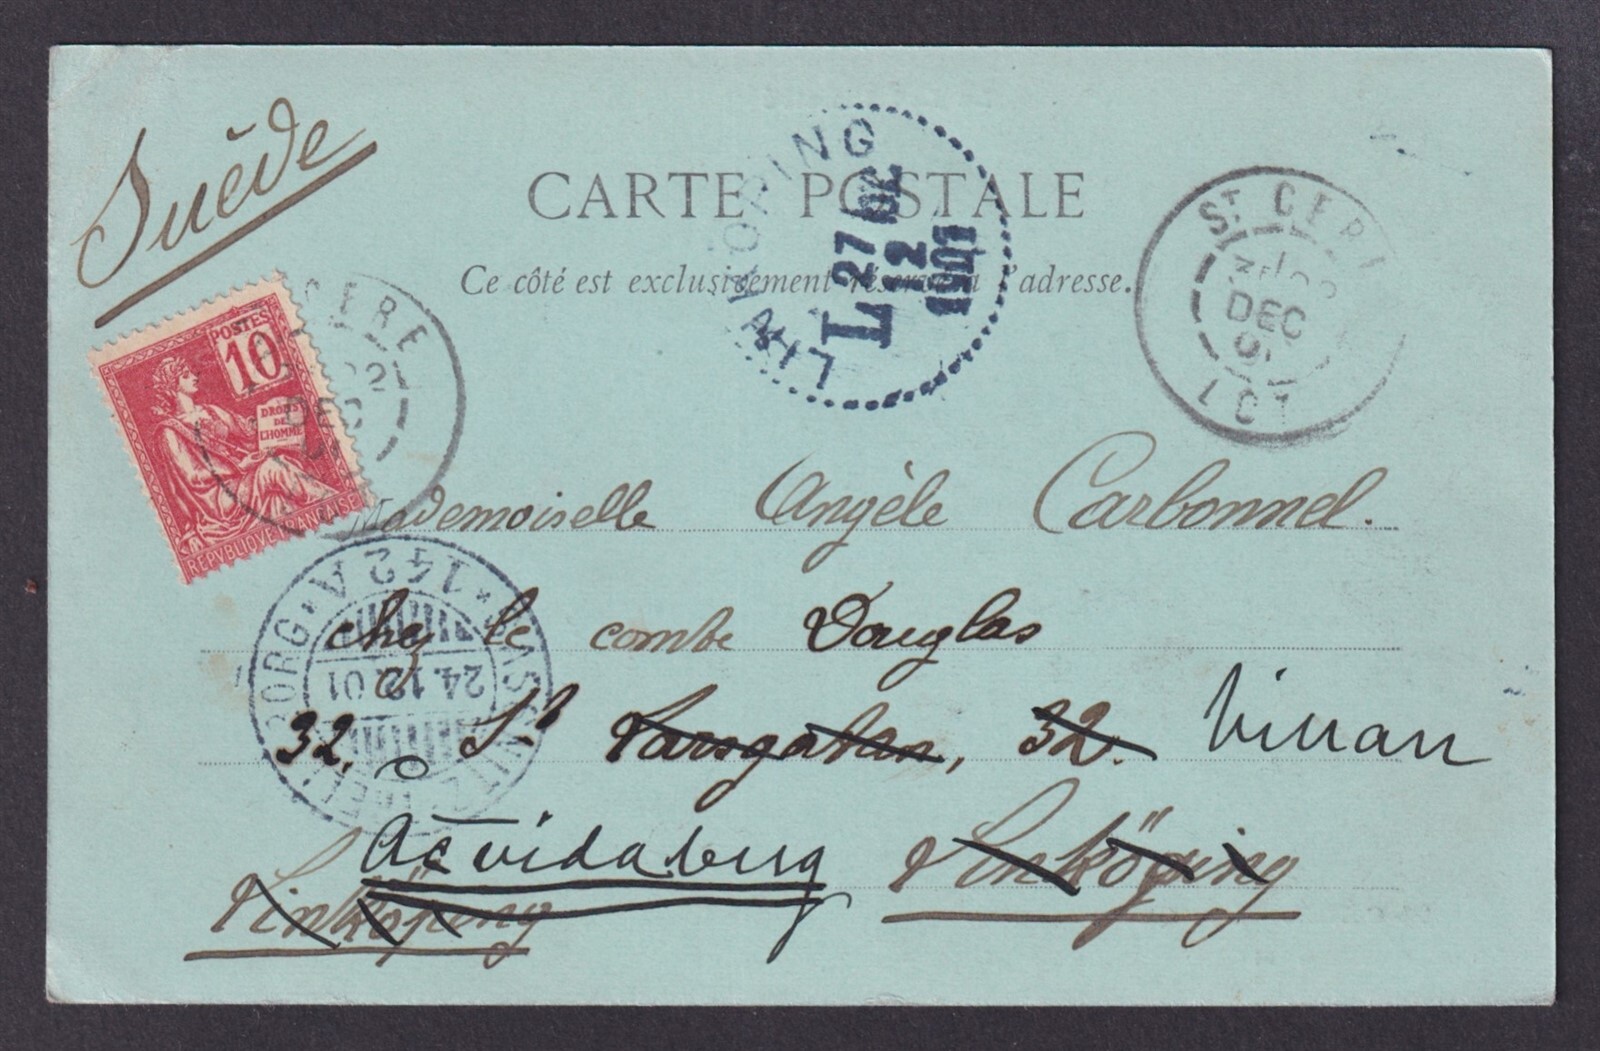 Suède
CARTE POSTALE
Ce côté est exclusivement réservé à l'adresse.
LINKÖPING
L 27 DE
12
1901
ST CERE
DEC
LOT
POSTES
10
DROITS
DE
L'HOMME
REPUBLIQUE FRANÇAISE
CERE
DEC
Mademoiselle Angèle Carbonnel.
chez le combe Douglas
32, St 32. Villan
Åtvidaberg Linköping
Linköping
142
24.12.01